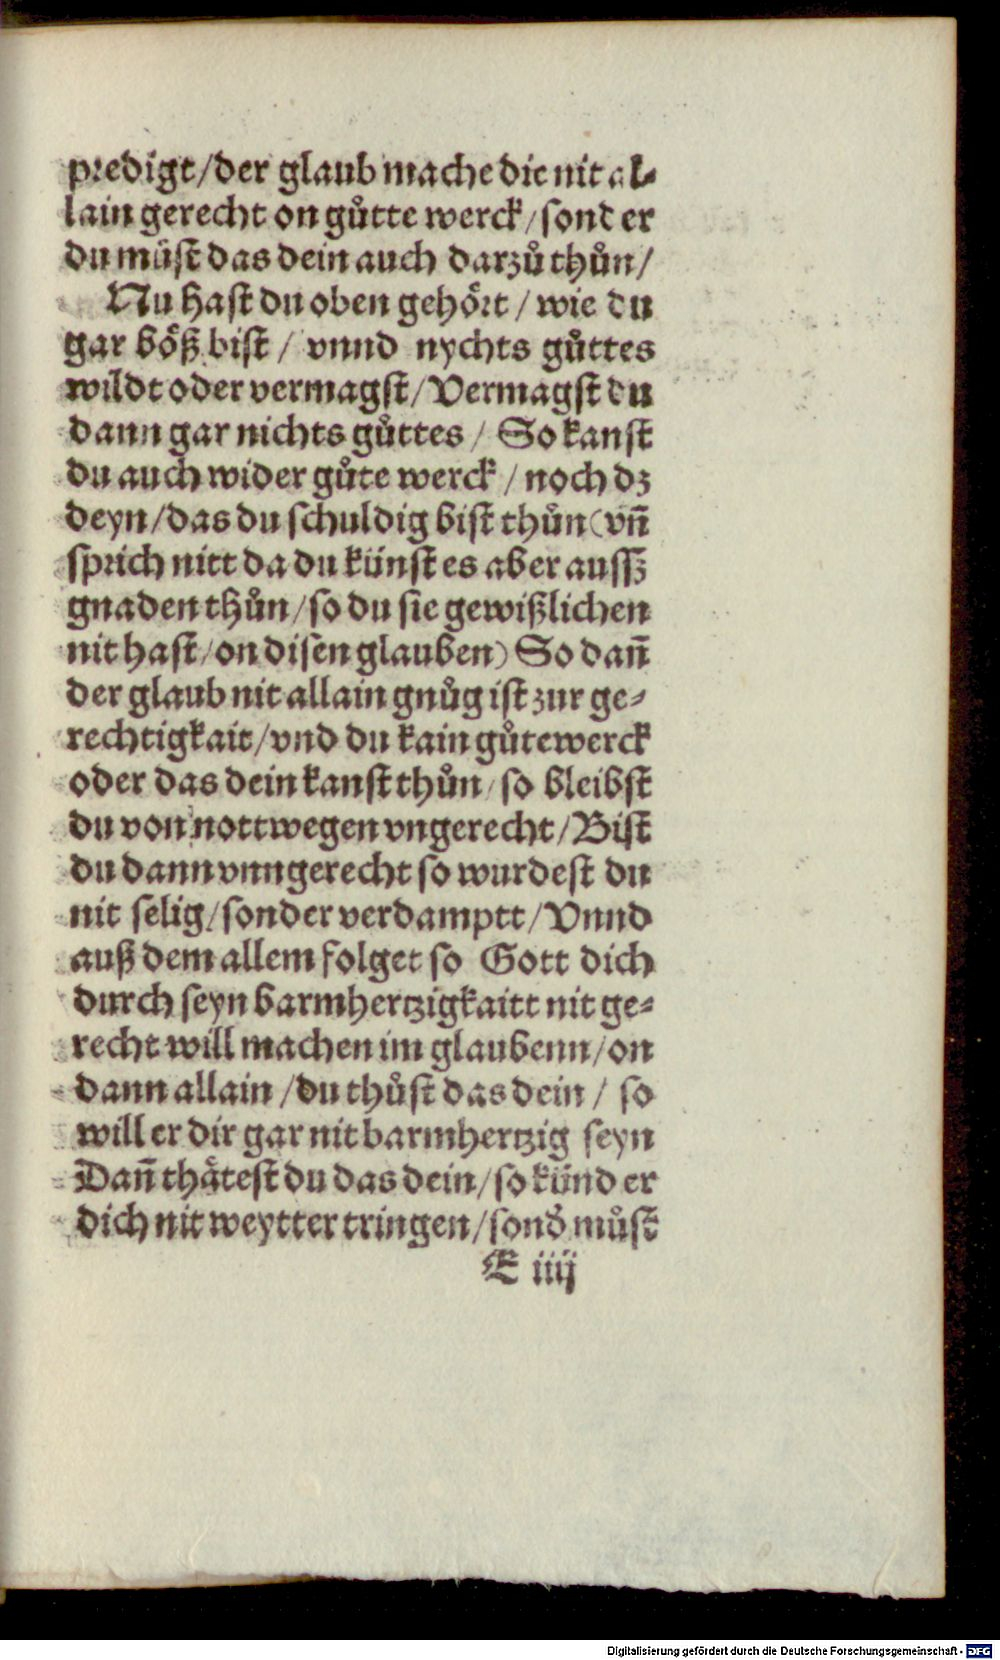 predigt/der glaub mache dic nit al-
lain gerecht on gůtte werck/sonder
du můst das dein auch darzů thůn/
Nu hast du oben gehört/wie du
gar böß bist/ vnnd nychts gůttes
wildt oder vermagst/Vermagst du
dann gar nichts gůttes/ So kanst
du auch wider gůte werck/noch dz
deyn/das du schuldig bist thůn(vn̄
sprich nitt da du künst es aber aussz
gnaden thůn/so du sie gewißlichen
nit hast/on disen glauben) So dan̄
der glaub nit allain gnůg ist zur ge-
rechtigkait/vnd du kain gůte werck
oder das dein kanst thůn/so bleibst
du von nottwegen vngerecht/Bist
du dann vnngerecht so wurdest du
nit selig/sonder verdamptt/Vnnd
auß dem allem folget so Gott dich
durch seyn barmhertzigkaitt nit ge-
recht will machen im glaubenn/on
dann allain/du thůst das dein/ so
will er dir gar nit barmhertzig seyn
Dan̄ thätest du das dein/so künd er
dich nit weytter tringen/sond̕ můst
E iiij
Digitalisierung gefördert durch die Deutsche Forschungsgemeinschaft - DFG